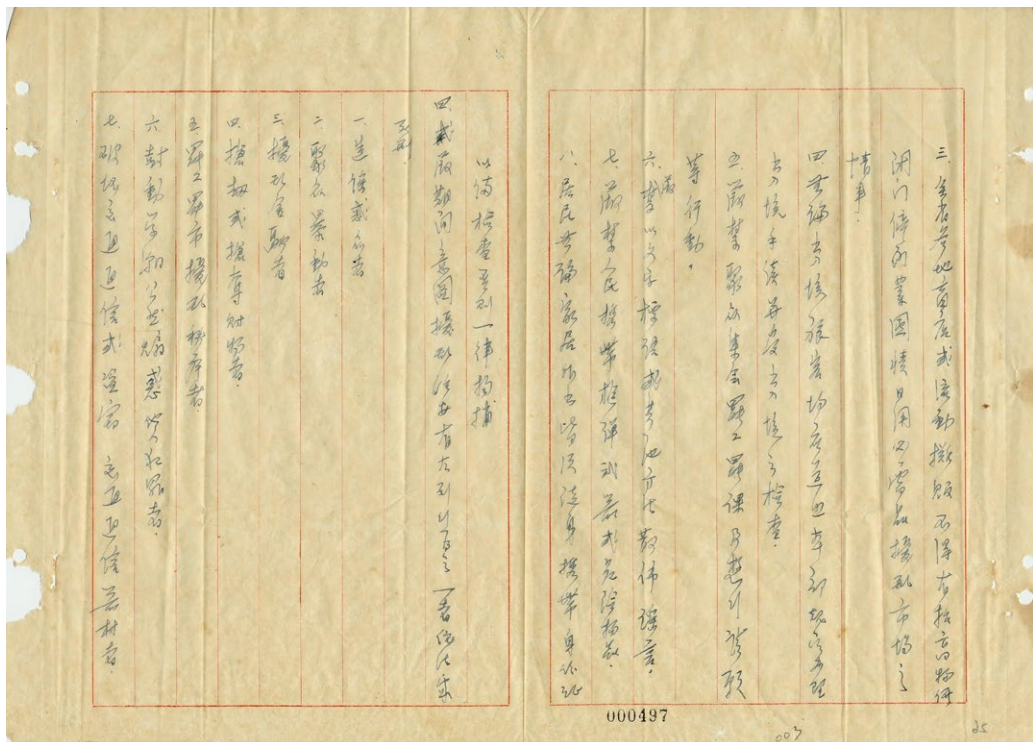 三、全省各地商店或流動攤販不得有抬高物價
閉门停業囤積日用必需品擾亂市場之
情事.
四 無論出入境旅客均應遵照本部規定辦理
出入境手續并受出入境之檢查.
五 嚴禁聚众集会罷工罷課及遊行請願
等行動.
六.嚴禁以文字標語或其他方法散佈謠言.
七、嚴禁人民携帶槍彈武器或危險物品.
八、居民無論家居外出皆須隨身携帶身份証
以備檢查否則一律拘捕
四.戒嚴期间意圖擾乱治安有左列行為之一者依法處
死刑.
一 造謠惑众者
二、聚众暴動者
三、擾乱金融者
四、搶劫或搶奪財物者
五.罷工罷市擾乱秩序者.
六、鼓動学潮公然煽惑他人犯罪者.
七、破坏交通通信或盜竊 交通通信器材者.
000497
003
25